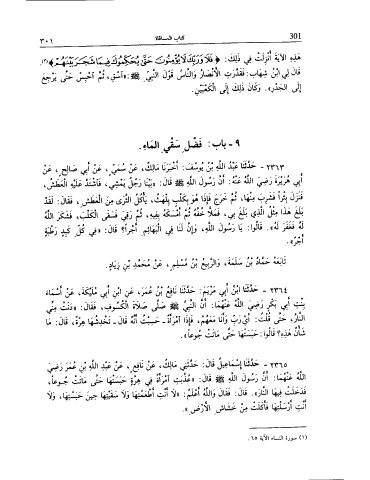 301
كتاب المساقاة
٣٠١
هَذِهِ الآيَةَ أُنْزِلَتْ فِي ذَلِكَ: ﴿فَلَا وَرَبِّكَ لَا يُؤْمِنُونَ حَتَّى يُحَكِّمُوكَ فِيمَا شَجَرَ بَيْنَهُمْ﴾(١).
قَالَ لِي ابْنُ شِهَابٍ: فَقَدَّرَتِ الأَنْصَارُ وَالنَّاسُ قَوْلَ النَّبِيِّ ﷺ: «اسْقِ، ثُمَّ احْبِسْ حَتَّى يَرْجِعَ
إِلَى الجَدْرِ». وَكَانَ ذَلِكَ إِلَى الْكَعْبَيْنِ.
٩ - باب: فَضْلِ سَقْيِ المَاءِ.
٢٣٦٣ - حَدَّثَنَا عَبْدُ اللَّهِ بْنُ يُوسُفَ: أَخْبَرَنَا مَالِكٌ، عَنْ سُمَيٍّ، عَنْ أَبِي صَالِحٍ، عَنْ
أَبِي هُرَيْرَةَ رَضِيَ اللَّهُ عَنْهُ: أَنَّ رَسُولَ اللَّهِ ﷺ قَالَ: «بَيْنَا رَجُلٌ يَمْشِي، فَاشْتَدَّ عَلَيْهِ الْعَطَشُ،
فَنَزَلَ بِئْراً فَشَرِبَ مِنْهَا، ثُمَّ خَرَجَ فَإِذَا هُوَ بِكَلْبٍ يَلْهَثُ، يَأْكُلُ الثَّرَى مِنَ الْعَطَشِ، فَقَالَ: لَقَدْ
بَلَغَ هَذَا مِثْلُ الَّذِي بَلَغَ بِي، فَمَلأَ خُفَّهُ ثُمَّ أَمْسَكَهُ بِفِيهِ، ثُمَّ رَقِيَ فَسَقَى الْكَلْبَ، فَشَكَرَ اللَّهُ
لَهُ فَغَفَرَ لَهُ». قَالُوا: يَا رَسُولَ اللَّهِ، وَإِنَّ لَنَا فِي الْبَهَائِمِ أَجْراً؟ قَالَ: «فِي كُلِّ كَبِدٍ رَطْبَةٍ
أَجْرٌ».
تَابَعَهُ حَمَّادُ بْنُ سَلَمَةَ، وَالرَّبِيعُ بْنُ مُسْلِمٍ، عَنْ مُحَمَّدِ بْنِ زِيَادٍ.
٢٣٦٤ - حَدَّثَنَا ابْنُ أَبِي مَرْيَمَ: حَدَّثَنَا نَافِعُ بْنُ عُمَرَ، عَنِ ابْنِ أَبِي مُلَيْكَةَ، عَنْ أَسْمَاءَ
بِنْتِ أَبِي بَكْرٍ رَضِيَ اللَّهُ عَنْهُمَا: أَنَّ النَّبِيَّ ﷺ صَلَّى صَلَاةَ الْكُسُوفِ، فَقَالَ: «دَنَتْ مِنِّي
النَّارُ، حَتَّى قُلْتُ: أَيْ رَبِّ وَأَنَا مَعَهُمْ، فَإِذَا امْرَأَةٌ- حَسِبْتُ أَنَّهُ قَالَ- تَخْدِشُهَا هِرَّةٌ، قَالَ: مَا
شَأْنُ هَذِهِ؟ قَالُوا: حَبَسَتْهَا حَتَّى مَاتَتْ جُوعاً».
٢٣٦٥ - حَدَّثَنَا إِسْمَاعِيلُ قَالَ: حَدَّثَنِي مَالِكٌ، عَنْ نَافِعٍ، عَنْ عَبْدِ اللَّهِ بْنِ عُمَرَ رَضِيَ
اللَّهُ عَنْهُمَا: أَنَّ رَسُولَ اللَّهِ ﷺ قَالَ: «عُذِّبَتِ امْرَأَةٌ فِي هِرَّةٍ حَبَسَتْهَا حَتَّى مَاتَتْ جُوعاً،
فَدَخَلَتْ فِيهَا النَّارَ». قَالَ: فَقَالَ وَاللَّهُ أَعْلَمُ: «لَا أَنْتِ أَطْعَمْتِهَا وَلَا سَقَيْتِهَا حِينَ حَبَسْتِهَا، وَلَا
أَنْتِ أَرْسَلْتِهَا فَأَكَلَتْ مِنْ خَشَاشِ الأَرْضِ».
(١) سورة النساء الآية ٦٥.